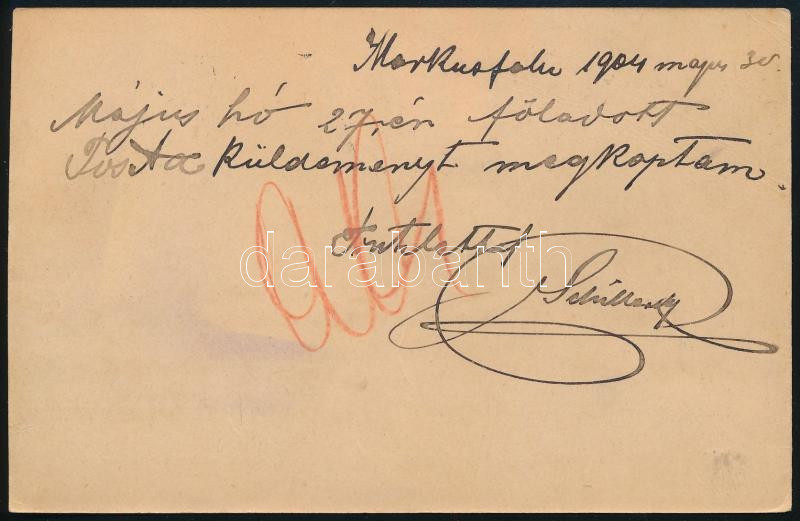 Markusfalu 1904 május 30.
Május hó 27.én föladott
Posta küldeményt megkaptam.
Tisztelettel
darabanth